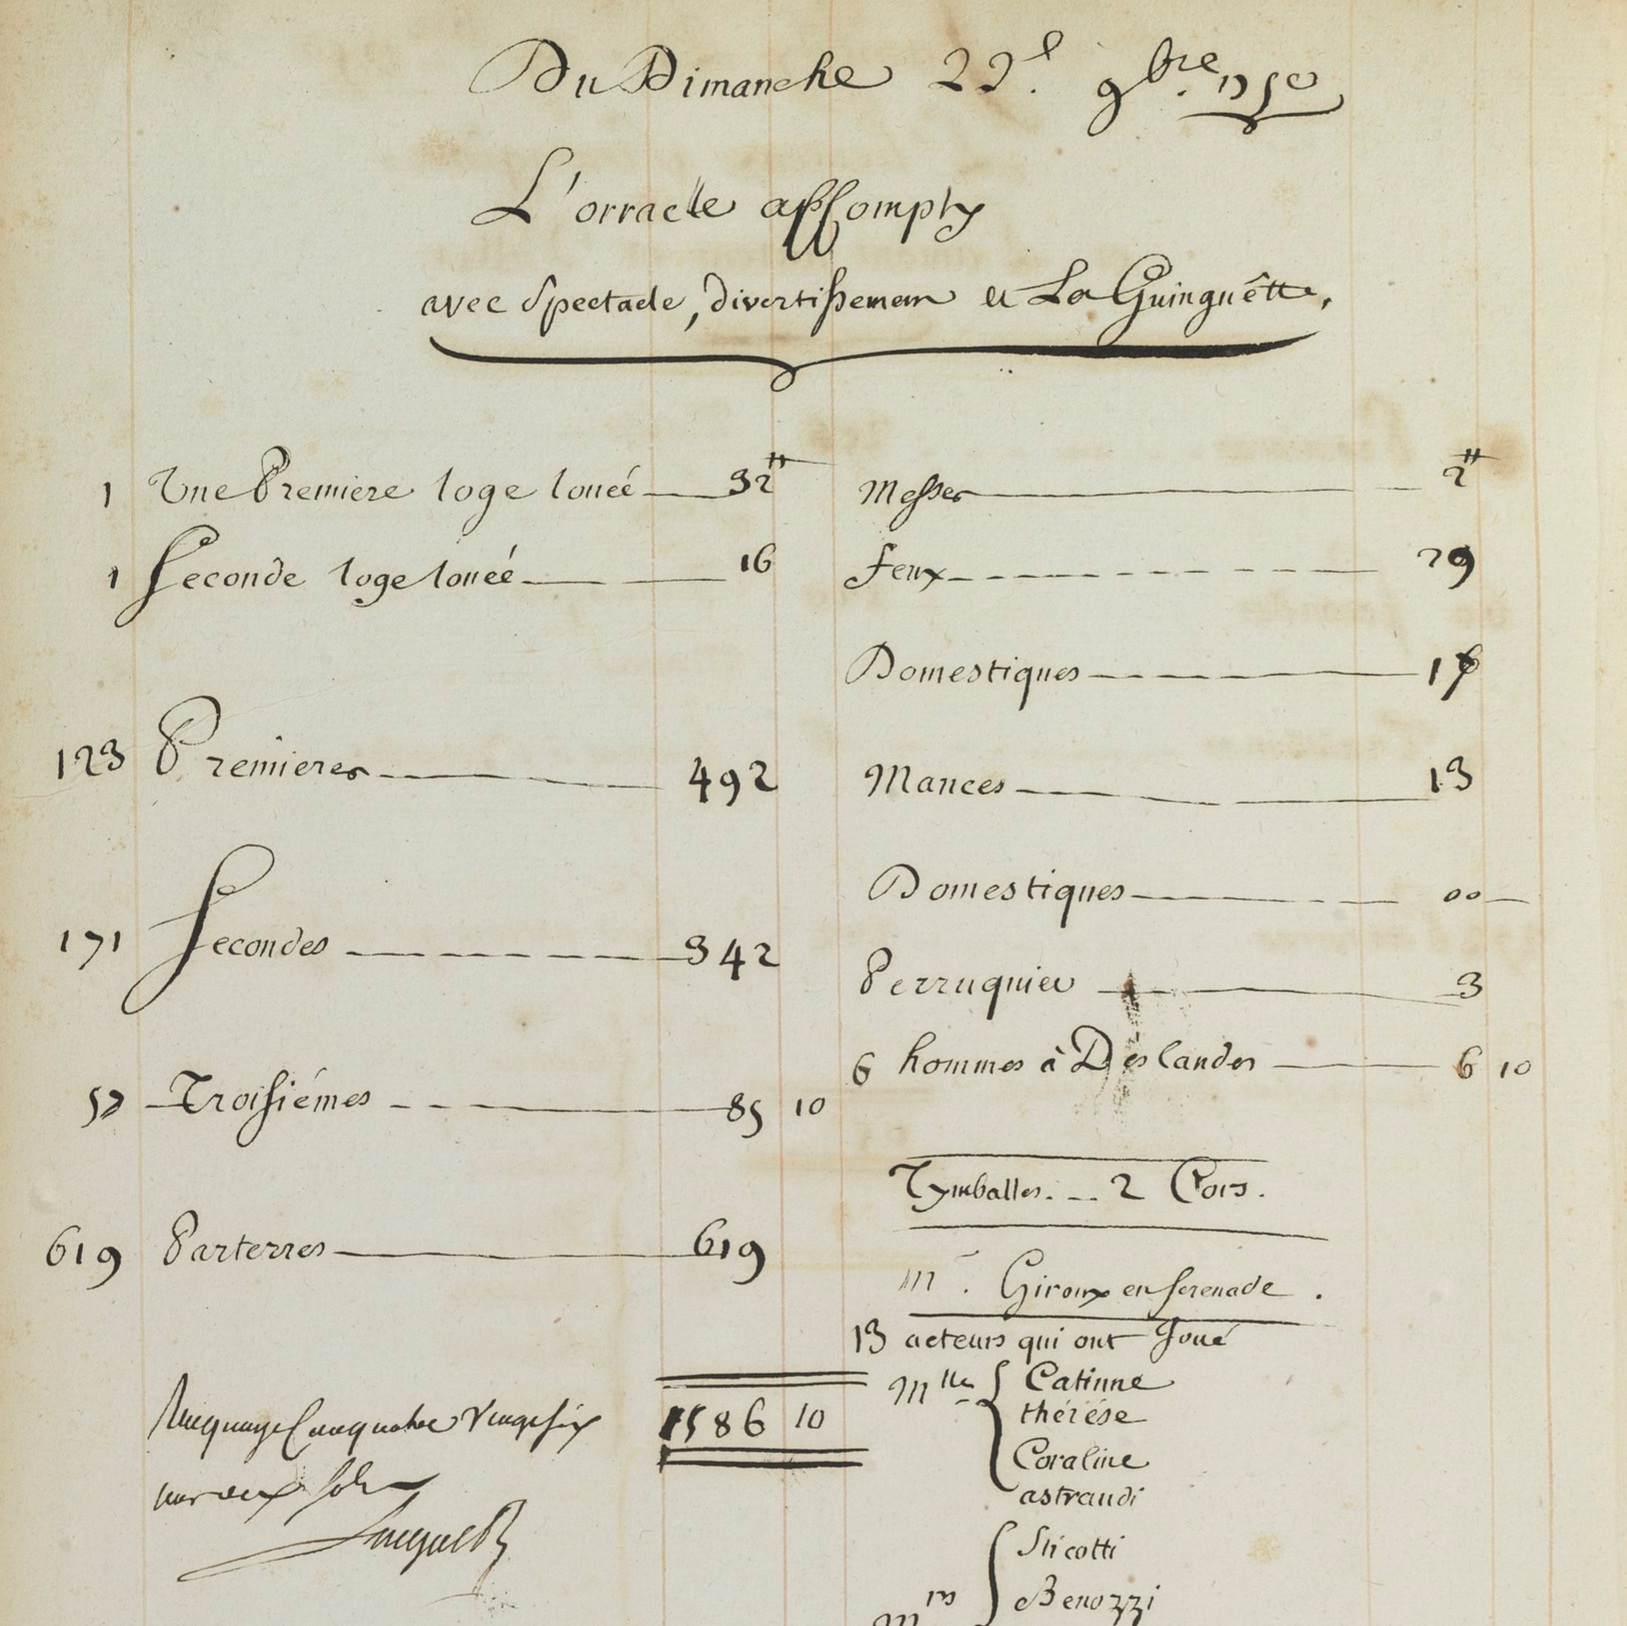 Du Dimanche 22e. 9bre. 1750
L'orracle assompty
avec Spectacle, divertissement et La Guinguêtte,
1 Une Premiere loge louéé 32tt
1 Seconde loge louéé 16
123 Premieres 492
171 Secondes 342
57 Troisiémes 85 10
619 Parterres 619
1586 10
Cinq quatre Vingt six
dix sols
Messes 2tt
feux 29
Domestiques
Mances 13
Domestiques 00
Perruquier 3
6 hommes à Déslandes 6 10
Tymballes. 2 Cors.
Mr. Giroux en serenade.
13 acteurs qui ont Joué
Mlles { Catinne
thérése
Coraline
astraudi
Mrs { Sticotti
Benozzi